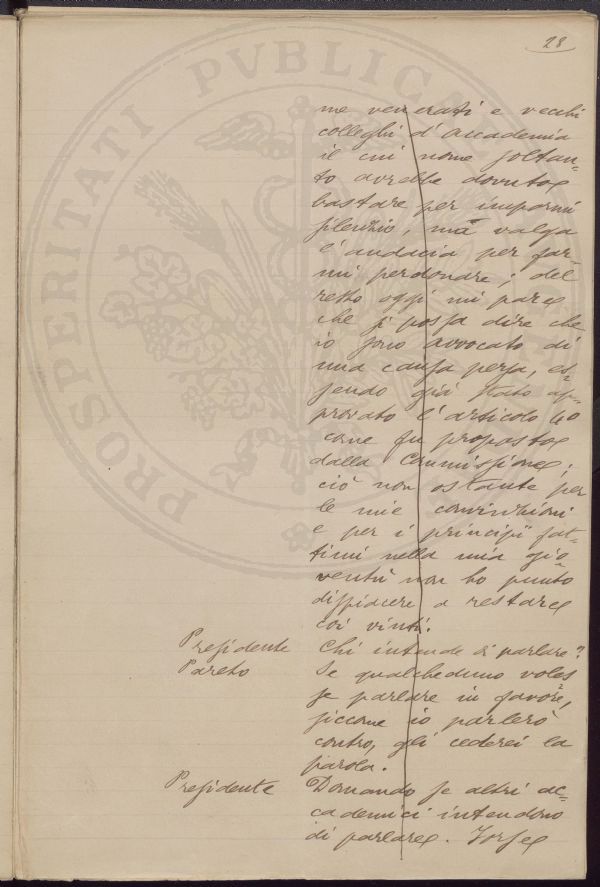 28
me venerati e vecchi
colleghi d'Accademia
il cui nome soltan=
to avrebbe dovuto
bastare per impormi
silenzio, ma valga
l'audacia per far=
mi perdonare; del
resto oggi mi pare
che si possa dire che
io sono avvocato di
una causa persa, es=
sendo già stato ap=
provato l'articolo 40
come fu proposto
dalla Commissione;
ciò non ostante per
le mie convinzioni
e per i principii fat=
timi nella mia gio=
ventù non ho punto
dispiacere a restare
coi vinti.
Presidente Chi intende di parlare?
Pareto Se qualcheduno voles
se parlare in favore,
siccome io parlerò
contro, gli cederei la
parola.
Presidente Domando se altri ac=
cademici intendono
di parlare. Forse
PROSPERITATI PVBLICAE